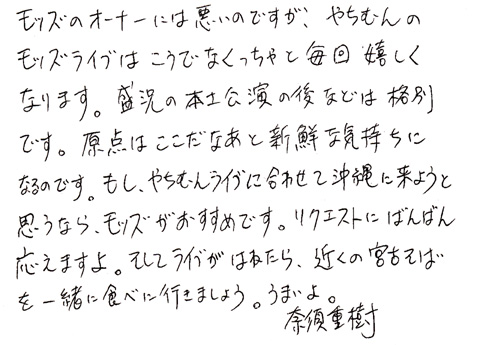 モッズのオーナーには悪いのですが、やちむんの
モッズライブはこうでなくっちゃと毎回嬉しく
なります。盛況の本土公演の後などは格別
です。原点はここだなあと新鮮な気持ちに
なるのです。もし、やちむんライブに合わせて沖縄に来ようと
思うなら、モッズがおすすめです。リクエストにばんばん
応えますよ。そしてライブがはねたら、近くの宮古そば
を一緒に食べに行きましょう。うまいよ。
奈須重樹